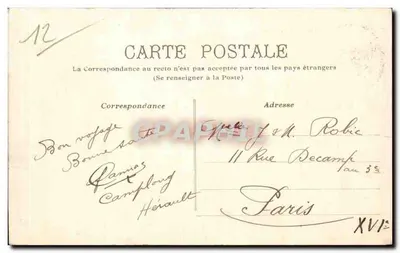 12
CARTE POSTALE
La Correspondance au recto n'est pas acceptée par tous les pays étrangers
(Se renseigner à la Poste)
Correspondance
Adresse
Bon voyage
Bonne santé
Camplong
Hérault
J & M. Robic
11 Rue Decamp
au 3e
Paris
XVIe